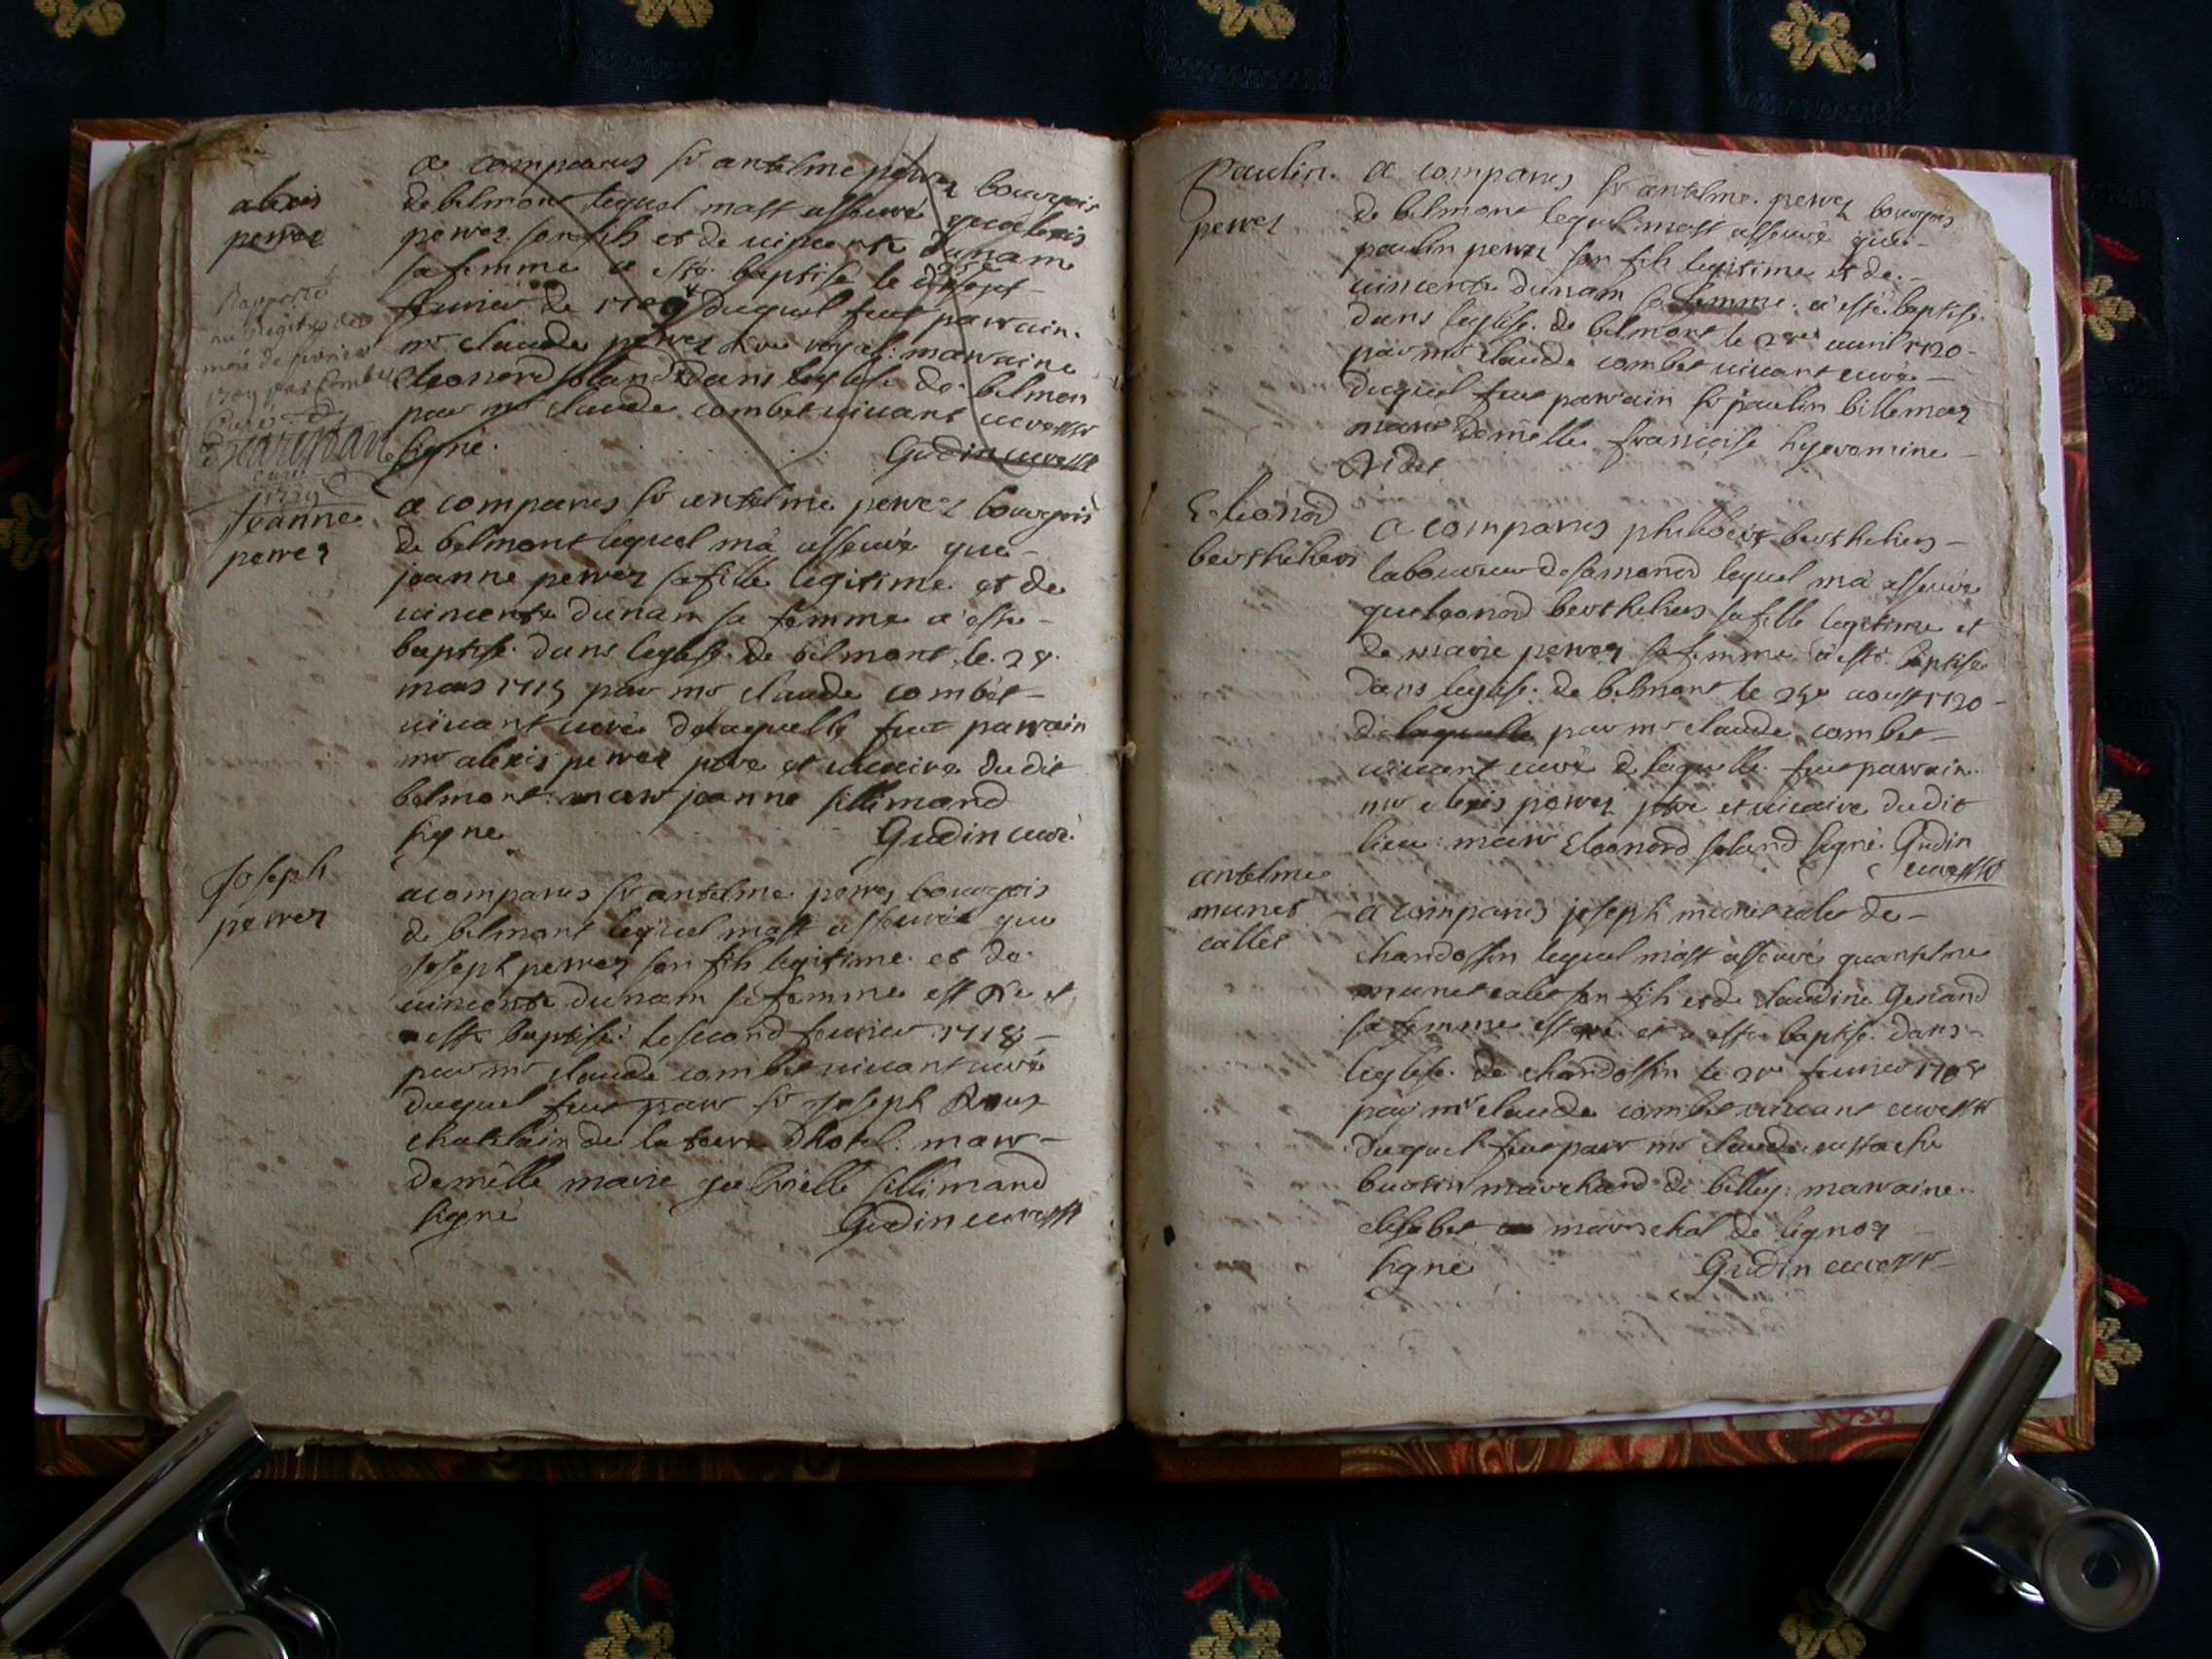 alexis
perrez
Rapporté
au Registre du
mois de fevrier
1709 par Combet
Curé
curé
a comparus sr antelme perrez bourgois
de belmont lequel mast asseuré qualexis
perrez son fih et de vincente dunam
sa femme a esté baptise le
feuvier de 1709 duquel fut parrain
mr claude perrez royal marraine
eleonord soland dans leglise de belmon
par mr claude combet vivant cure
signé Gudin cure
Jeanne
perrez
a comparus sr antelme perrez bourgois
de belmont lequel má asseuré que
jeanne perrez sa fille legitime et de
vincente dunam sa femme a esté
baptise dans leglise de belmont le 28
mars 1715 par mr claude combet
vivant curé delaquelle fut parrain
mr alexis perrez ptre et vicaire dudit
belmont marr jeanne sillimand
signe Gudin curé
Joseph
perrez
a comparus sr antelme perrez bourgois
de belmont lequel mast asseuré que
Joseph perrez son fih legitime et de
vincente dunam sa femme est né et
a esté baptisé le second feuvier 1718
par mr claude combet vivant curé
duquel fut parr sr Joseph Roux
chatelain de la tour dhotel marr
demelle marie gabrielle sillimand
signé Gudin cure
Paulin
perrez
a comparus sr antelme perrez bourgois
de belmont lequel mast asseuré que
paulin perrez son fih legitime et de
vincente dunam sa femme a esté baptisé
dans leglise de belmont le avril 1720
par mr claude combet vivant curé
duquel fut parrain sr paulin billemaz
marr demelle françoise hyeromine
Nidet
Eleonord
bertheliers
a comparus philibert bertheliers
laboureur de samonod lequel má asseuré
queleonord bertheliers sa fille legitime et
de marie perrez sa femme a esté baptisé
dans leglise de belmont le aoust 1720
de laquelle par mr claude combet
vivant curé de laquelle fut parrain
mr alexis perrez ptre et vicaire dudit
lieu marr Eleonord soland signé Gudin
cure
antelme
munet
callet
a comparus joseph munet calet de
chandossin lequel mast asseuré quantelme
munet calet son fih et de claudine Genand
sa femme est né et a esté baptisé dans
leglise de chandossin le feuvier 1708
par mr claude combet vivant cure
duquel fut parr mr claude eustache
burtin marchand de billey marraine
elisabet marechal de lignoz
signé Gudin cure